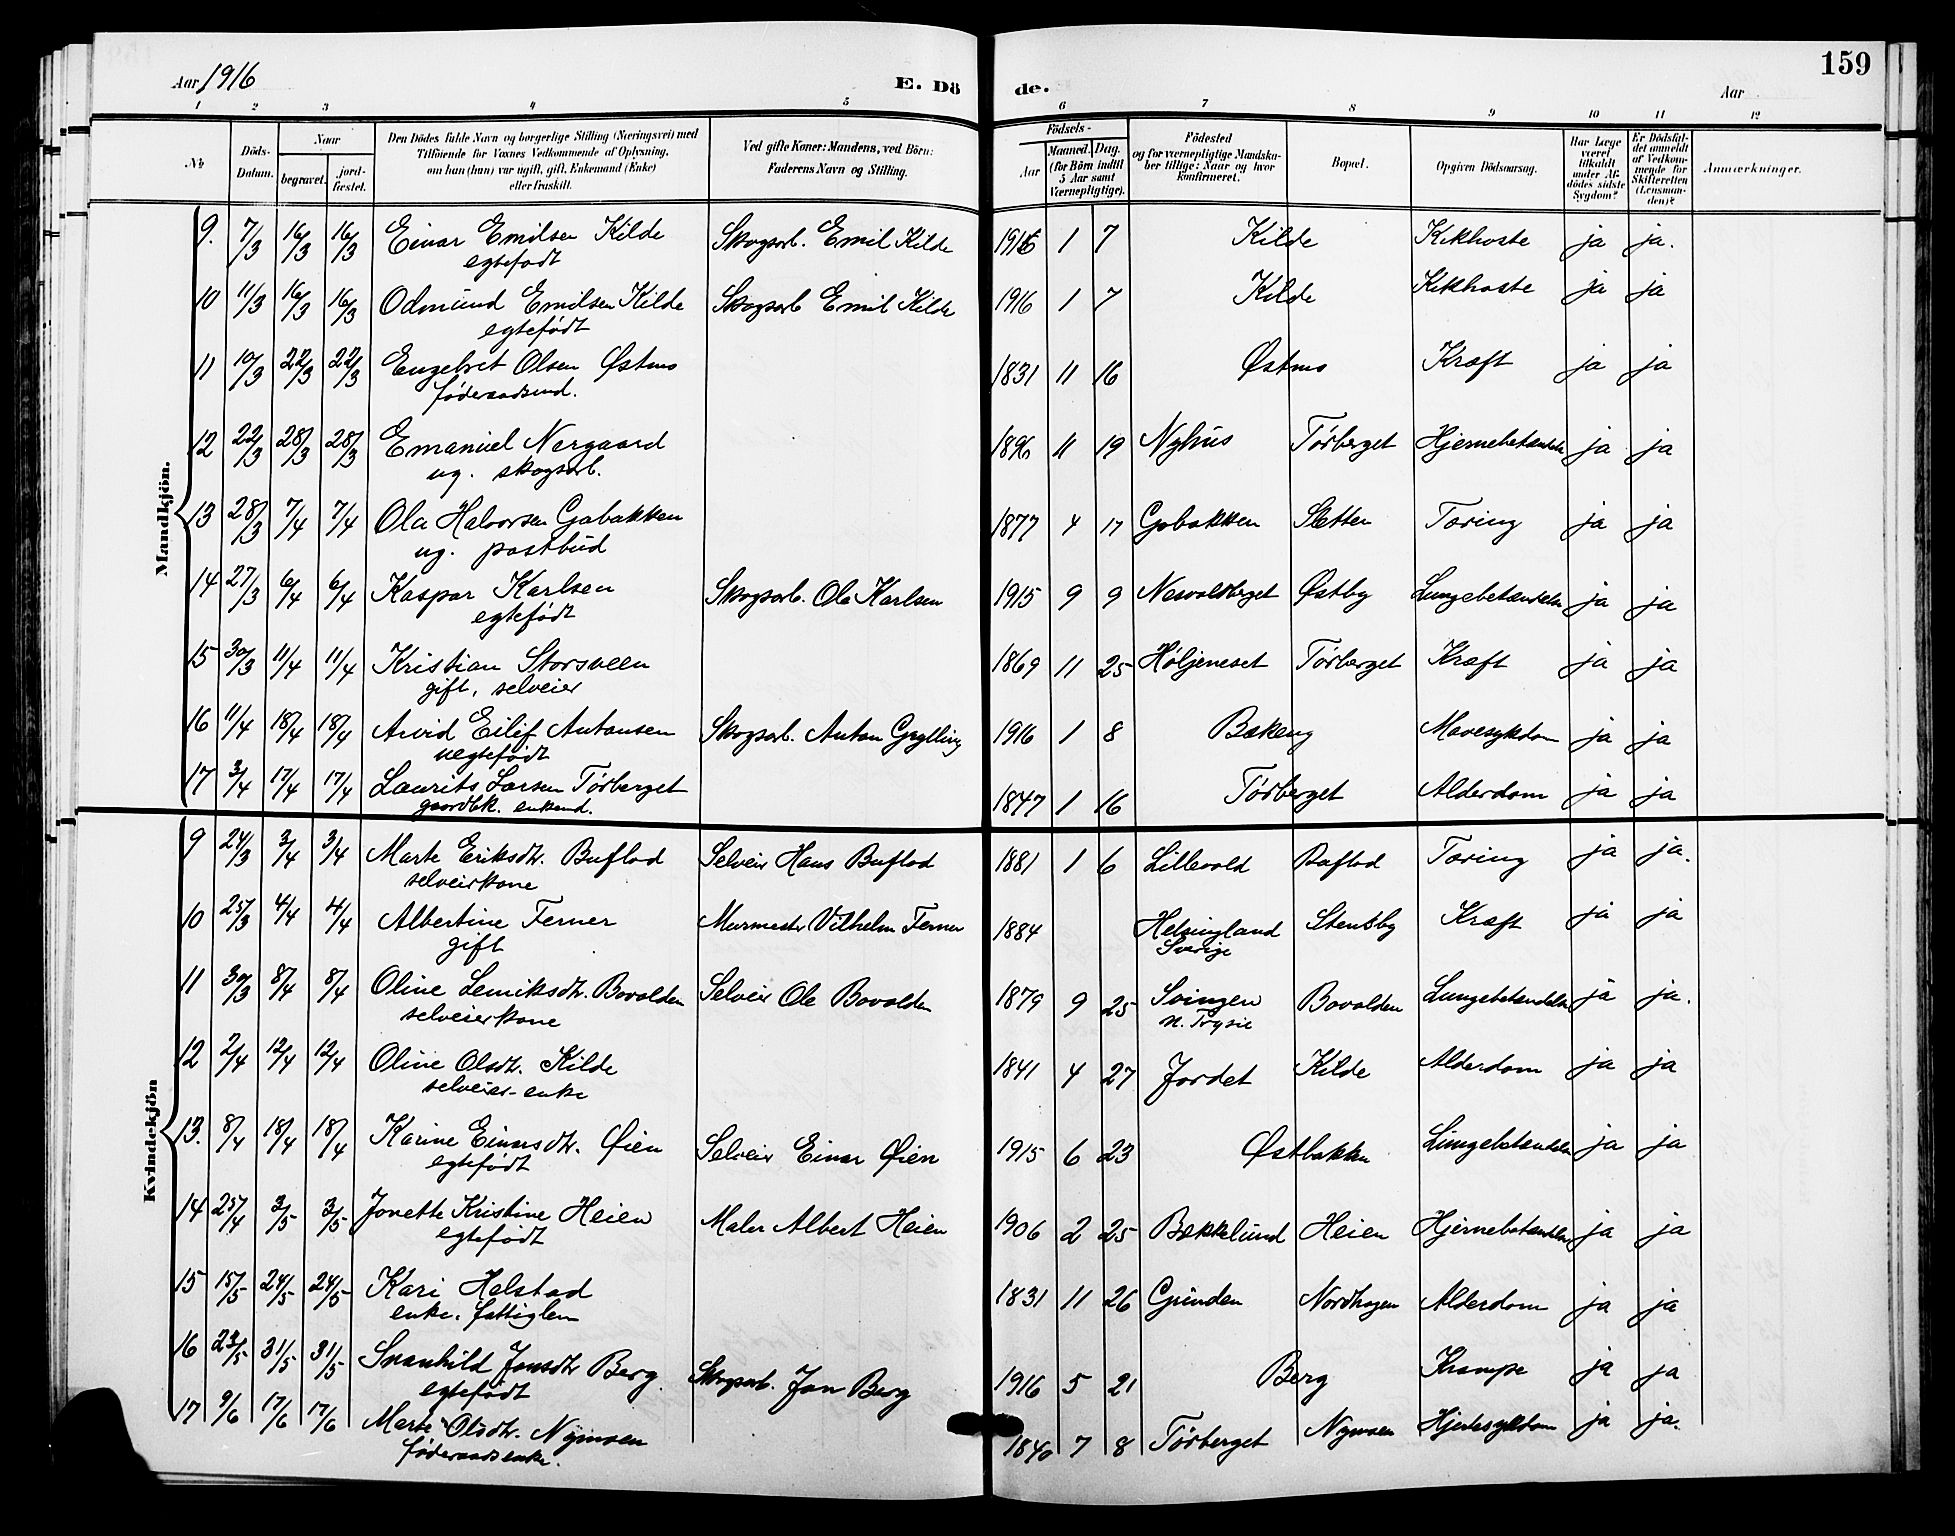 Aar 1916 E. Dö de. Aar 159
1 2 3 4 5 6 7 8 9 10 11 12
No Döds-Datum. Naar begravet. jord-fæstet. Den Dödes fulde Navn og borgerlige Stilling (Næringsvei) med Tilföiende for Voxnes Vedkommende af Oplysning, om han (hun) var ugift, gift, Enkemand (Enke) eller fraskilt. Ved gifte Koner: Mandens, ved Börn: Faderens Navn og Stilling. Födsels- Aar Maaned. Dag. (for Börn indtil 5 Aar samt Værnepligtige). Födested og for værnepligtige Mandskaber tillige: Naar og hvor konfirmeret. Bopæl. Opgiven Dödsaarsag. Har Læge været tilkaldt under Afdödes sidste Sygdom? Er Dödsfaldet anmeldt af Vedkommende for Skifteretten (Lensmanden)? Anmærkninger.
Mandkjön.
9. 7/3 16/3 16/3 Einar Emilsen Kilde Skogsarb. Emil Kilde 1916 1 7 Kilde Kikhoste ja ja.
egtefødt
10 11/3 16/3 16/3 Odmund Emilsen Kilde Skogsarb Emil Kilde 1916 1 7 Kilde Kikhoste ja ja
egtefødt
11 10/3 22/3 22/3 Engebret Olsen Østmo 1831 11 16 Østmo Kræft ja ja
føderaadsmd.
12 22/3 28/3 28/3 Emanuel Nergaard 1896 11 19 Nyhus Tørberget Hjernebetændelse ja ja
ug. skogsarb.
13 28/3 7/4 7/4 Ola Halvorsen Gabakken 1877 4 17 Gabakken Sletten Tæring ja ja
ug. postbud
14 27/3 6/4 6/4 Kaspar Karlsen Skogsarb. Ola Karlsen 1915 9 9 Nesvoldberget Østby Lungebetændelse ja ja
egtefødt
15 30/3 11/4 11/4 Kristian Storsveen 1869 11 25 Høljeneset Tørberget Kræft ja ja
gift, selveier
16 11/4 18/4 18/4 Arvid Eilif Antonsen Skogsarb. Anton Grylling 1916 1 8 Bækeng Mavesykdom ja ja
uegtefødt
17 3/4 17/4 17/4 Laurits Larsen Tørberget 1847 1 16 Tørberget Alderdom ja ja
gaardbk. enkemd.
Kvindekjön
9 24/3 3/4 3/4 Marte Eriksdtr. Buflod Selveier Hans Buflod 1881 1 6 Lillevold Buflod Tæring ja ja.
selveierkone
10 25/3 4/4 4/4 Albertine Ferner Murmester Vilhelm Ferner 1884 Helsingland Stensby Kræft ja ja
gift Sverige
11 30/3 8/4 8/4 Oline Lemiksdtr. Bovolden Selveier Ole Bovolden 1879 9 25 Svingen Bovolden Lungebetændelse ja ja.
selveierkone n. Trysil
12 2/4 12/4 12/4 Oline Olsdtr. Kilde 1841 4 27 Jordet Kilde Alderdom ja ja
selveier-enke
13. 8/4 18/4 18/4 Karine Einarsdtr. Øien Selveier Einar Øien 1915 6 23 Østbakken Lungebetændelse ja ja
egtefødt
14 25/4 3/5 3/5 Jonette Kristine Heien Maler Albert Heien 1906 2 25 Bækkelund Heien Hjernebetændelse ja ja
egtefødt
15 15/5 24/5 24/5 Kari Halstad 1831 11 26 Grunden Nordhagen Alderdom ja ja
enke. fattiglem
16 23/5 31/5 31/5 Svanhild Jonsdtr Berg Skogsarb. Jon Berg 1916 5 21 Berg Krampe ja ja
egtefødt
17 9/6 17/6 17/6 Marte Olsdtr. Nymoen 1840 7 8 Tørberget Nymoen Hjertesykdom ja ja.
føderaadsenke.